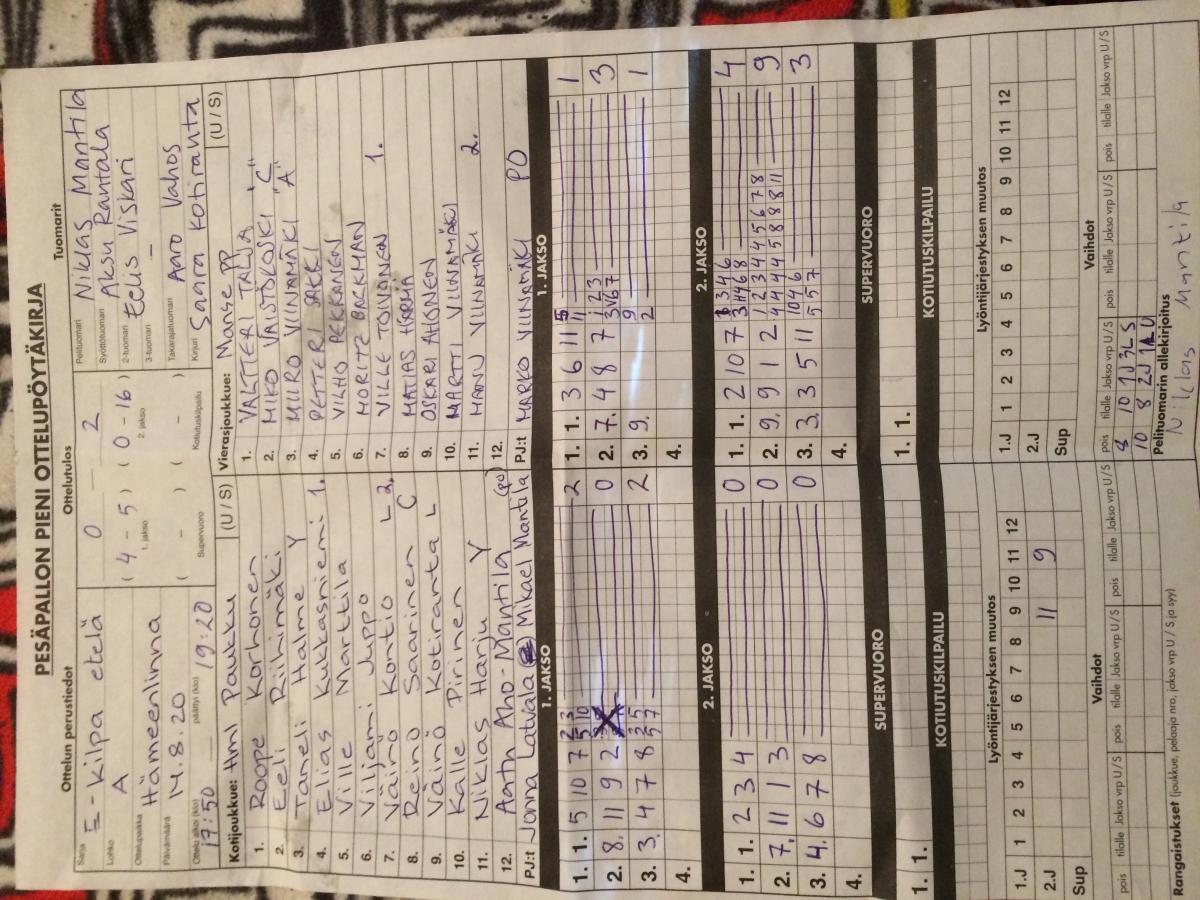 PESÄPALLON PIENI OTTELUPÖYTÄKIRJA
Ottelun perustiedot
Sarja E-Kilpa etelä
Lohko A
Ottelupaikka Hämeenlinna
Päivämäärä 14.8.20
Ottelu alkoi (klo) 17:50 päättyi (klo) 19:20
Ottelutulos
0 — 2
(4 – 5) (0 – 16)
1. jakso 2. jakso
( – ) ( – )
Supervuoro Kotiutuskilpailu
Tuomarit
Pelituomari Niklas Mantila
Syöttötuomari Aksu Rantala
2-tuomari Eelis Viskari
3-tuomari —
Takarajatuomari Aaro Vahos
Kirjuri Saara Kotiranta
Kotijoukkue: Hml Paukku (U / S)
1. Roope Korhonen
2. Eeli Riihimäki
3. Taneli Halme Y
4. Elias Kukkasniemi 1.
5. Ville Marttila
6. Viljami Juppo
7. Väinö Kontio L 2.
8. Reino Saarinen C
9. Väinö Kotiranta L
10. Kalle Pirinen
11. Niklas Harju Y
12. Aatu Aho-Mantila (pu)
PJ:t Jonna Latvala Mikael Mantila
Vierasjoukkue: Manse PP (U / S)
1. VALTTERI TALJA
2. MIKO VAISTOKOSKI "C"
3. MIIRO VIINAMÄKI "A"
4. PETTERI SÄKKI
5. VILHO PEKKANEN
6. MORITZ BACKMAN
7. VILLE TOIVONEN 1.
8. MATIAS HARMA
9. OSKARI AHONEN
10. MARTTI VIINAMÄKI
11. MANU VIINAMÄKI 2.
12.
PJ:t MARKO VIINAMÄKI PO
1. JAKSO
1. 1. 5 10 7 2
2. 8. 11 9 2 0
3. 3. 4 7 8 2
4.
1. JAKSO
1. 1. 3 6 11 1
2. 7. 4 8 7 3
3. 9. 1
4.
2. JAKSO
1. 1. 2 3 4 0
2. 7. 11 1 3 0
3. 4. 6 7 8 0
4.
2. JAKSO
1. 1. 2 10 7 4
2. 9. 9 1 2 1 2 3 4 4 5 6 7 8 9
4 4 4 4 5 8 8 8 11
3. 3. 3 5 11 3
4.
SUPERVUORO
1. 1.
SUPERVUORO
1. 1.
KOTIUTUSKILPAILU
KOTIUTUSKILPAILU
Lyöntijärjestyksen muutos
1.J 1 2 3 4 5 6 7 8 9 10 11 12
2.J 11 9
Sup
Lyöntijärjestyksen muutos
1.J 1 2 3 4 5 6 7 8 9 10 11 12
2.J
Sup
Vaihdot
pois tilalle Jakso vrp U / S pois tilalle Jakso vrp U / S pois tilalle Jakso vrp U / S
Vaihdot
pois tilalle Jakso vrp U / S pois tilalle Jakso vrp U / S pois tilalle Jakso vrp U / S
8 10 1J 3L S
10 8 2J 1A U
Rangaistukset (joukkue, pelaaja nro, jakso vrp U / S ja syy)
Pelituomarin allekirjoitus
Niklas Mantila